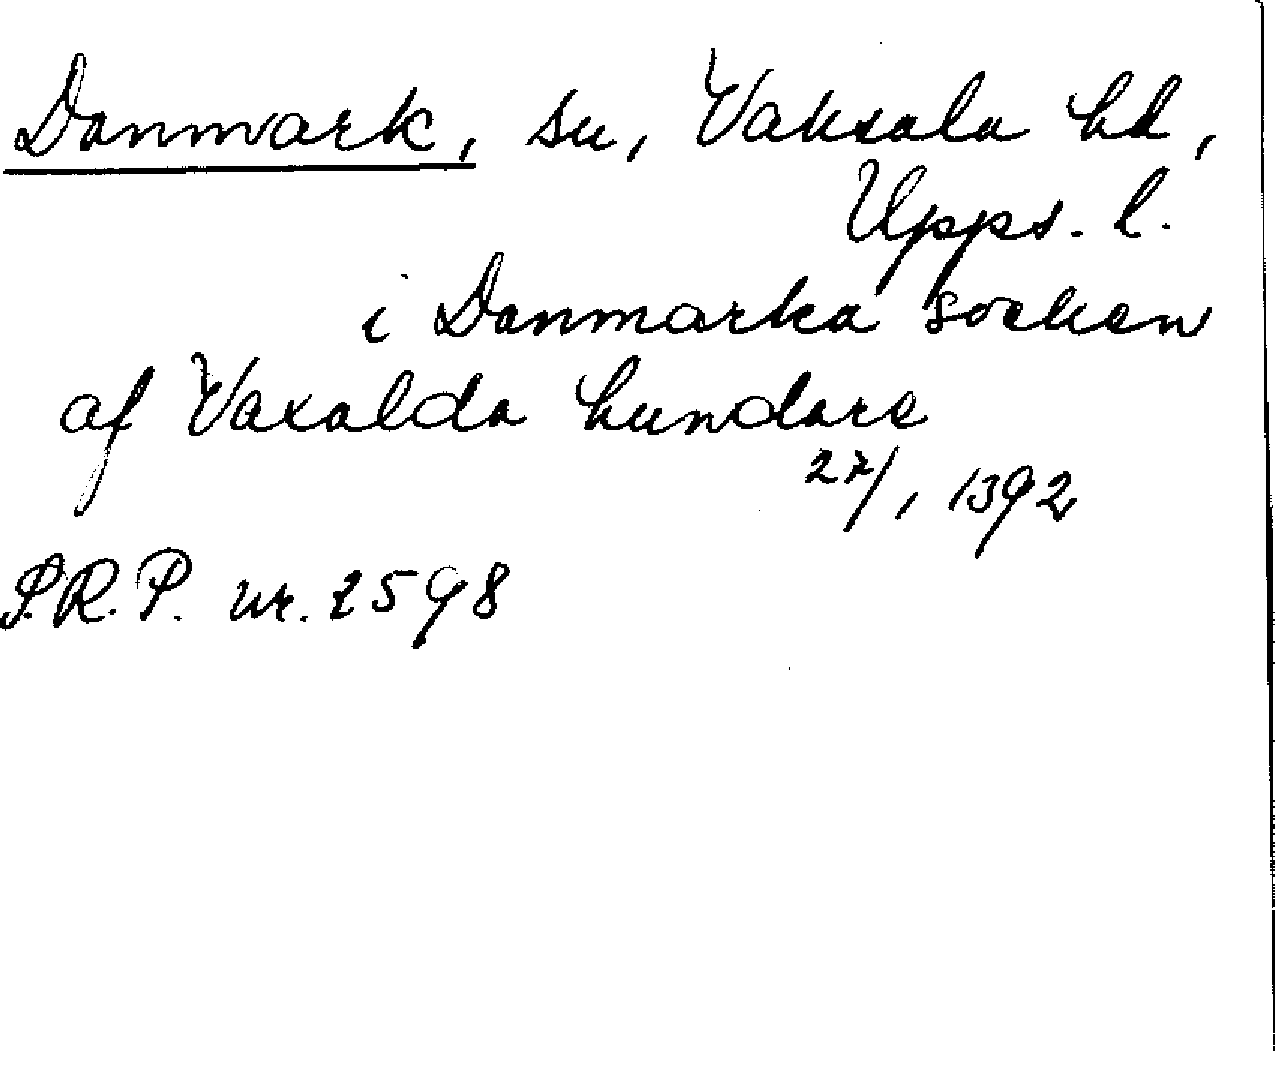 Danmark, sn, Vaksala hd,
Upps. l.
i Danmarka socken
af Vaxalda hundare
27/1 1392
S.R.P. nr. 2598